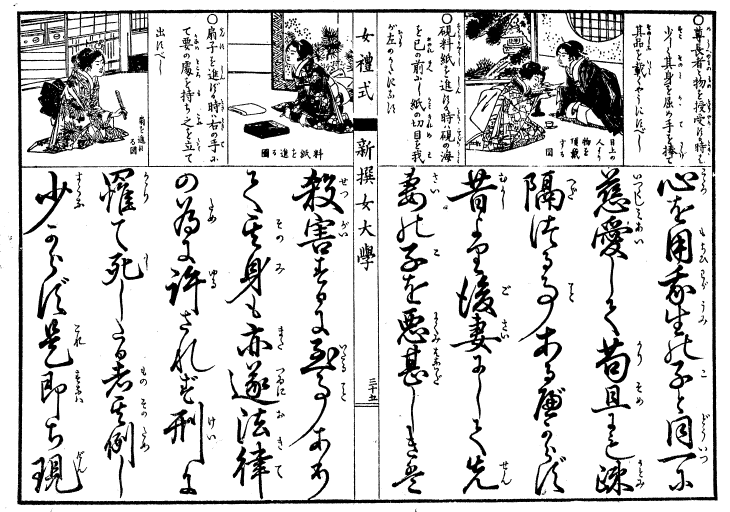 ○尊長者へ物を授受する時は
少し其身を屈め手を捧て
其品を戴くやうにすべし
目上の
人より
物を
頂戴
する
図
○硯料紙を進ずる時硯の海
を己の前にし紙の切目を我
が左のかたにす
心を用我生の子と同一に
慈愛して苟且にも疎
隔たる事ある可からず
昔より後妻にして先
妻の子を悪甚しきは
女禮式
新撰女大學
三十五
料紙を進る圖
○扇子を進ずる時右の手に
て要の處を持ち之を立て
出すべし
扇を進
る図
殺害するに至る事あり
て其身も亦遂法律
の為に許されず刑に
罹て死したる者其例し
少からず是即ち現